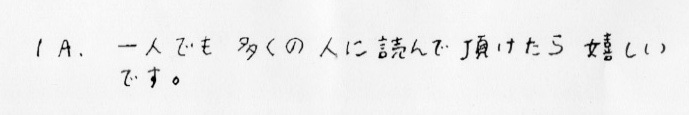 1A. 一人でも多くの人に読んで頂けたら嬉しい
です。